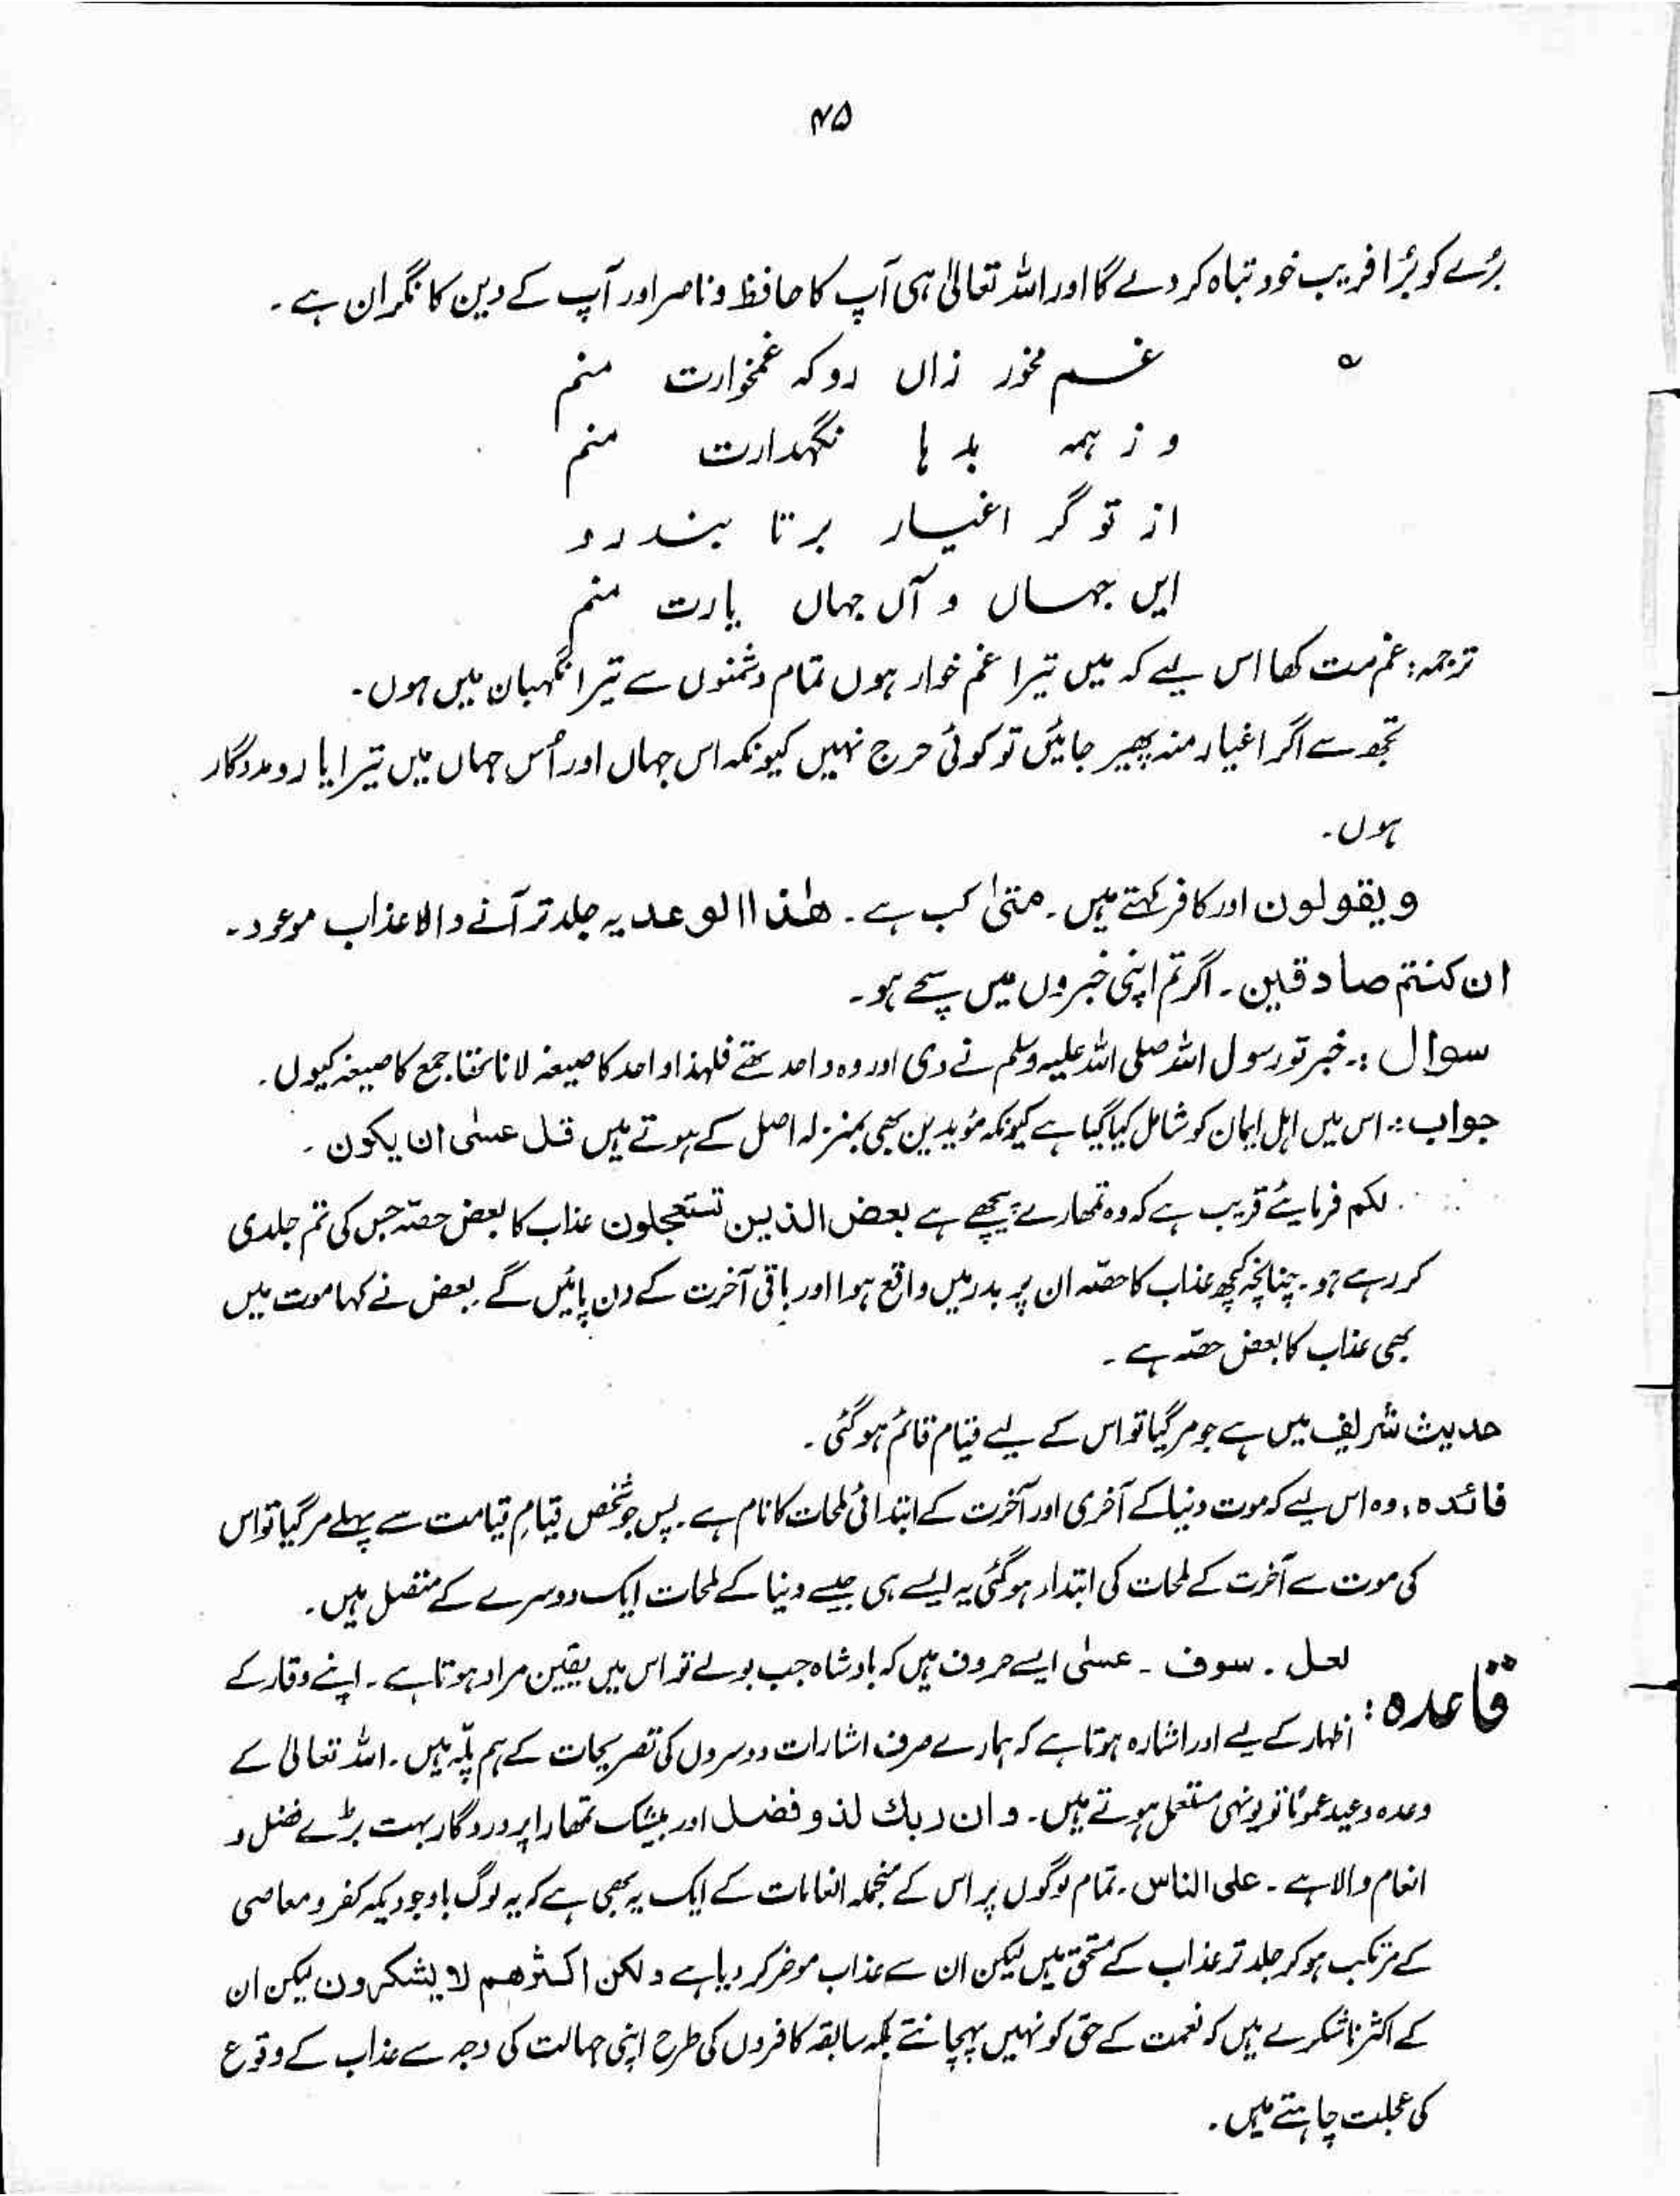 ۴۵
بُرے کو بُرا فریب خود تباہ کر دے گا اور اللہ تعالیٰ ہی آپ کا حافظ و ناصر اور آپ کے دین کا نگران ہے ۔
ؔ غم مخور زاں رو کہ غمخوارت منم
و ز ہمہ بد ہا نگہدارت منم
از تو گر اغیار برتا بند رو
ایں جہاں و آں جہاں یارت منم
ترجمہ : غم مت کھا اس لیے کہ میں تیرا غم خوار ہوں تمام دشمنوں سے تیرا نگہبان میں ہوں ۔
تجھ سے اگر اغیار منہ پھیر جائیں تو کوئی حرج نہیں کیونکہ اس جہاں اور اُس جہاں میں تیرا یار و مددگار
ہوں ۔
ویقولون اور کافر کہتے ہیں ۔ متیٰ کب ہے ۔ ھٰذا الوعد یہ جلد تر آنے والا عذاب موعود ۔
ان کنتم صادقین ۔ اگر تم اپنی خبروں میں سچے ہو ۔
سوال :۔ خبر تو رسول اللہ صلی اللہ علیہ وسلم نے دی اور وہ واحد تھے فلہذا واحد کا صیغہ لانا تھا جمع کا صیغہ کیوں ۔
جواب :۔ اس میں اہل ایمان کو شامل کیا گیا ہے کیونکہ مؤیدین بھی بمنزلہ اصل کے ہوتے ہیں قل عسٰی ان یکون ۔
لکم فرمایئے قریب ہے کہ وہ تمھارے پیچھے ہے بعض الذین تستعجلون عذاب کا بعض حصّہ جس کی تم جلدی
کر رہے ہو ۔ چنانچہ کچھ عذاب کا حصّہ ان پر بدر میں واقع ہوا اور باقی آخرت کے دن پائیں گے ۔ بعض نے کہا موت میں
بھی عذاب کا بعض حصّہ ہے ۔
حدیث شریف میں ہے جو مر گیا تو اس کے لیے قیام قائم ہو گئی ۔
فائدہ : وہ اس لیے کہ موت دنیا کے آخری اور آخرت کے ابتدائی لمحات کا نام ہے ۔ پس جو شخص قیامِ قیامت سے پہلے مر گیا تو اس
کی موت سے آخرت کے لمحات کی ابتداء ہو گئی یہ ایسے ہی جیسے دنیا کے لمحات ایک دوسرے کے متصل ہیں ۔
قاعدہ : لعل ۔ سوف ۔ عسٰی ایسے حروف ہیں کہ بادشاہ جب بولے تو اس میں یقین مراد ہوتا ہے ۔ اپنے وقار کے
اظہار کے لیے اور اشارہ ہوتا ہے کہ ہمارے صرف اشارات دوسروں کی تصریحات کے ہم پلّہ ہیں ۔ اللہ تعالیٰ کے
وعدہ وعید عموماً تو یونہی مستعمل ہوتے ہیں ۔ و ان ربك لذو فضل اور بیشک تمھارا پروردگار بہت بڑے فضل و
انعام والا ہے ۔ علی الناس ۔ تمام لوگوں پر اس کے منجملہ انعامات کے ایک یہ بھی ہے کہ یہ لوگ باوجودیکہ کفر و معاصی
کے مرتکب ہو کر جلد تر عذاب کے مستحق ہیں لیکن ان سے عذاب موخر کر دیا ہے و لکن اکثرھم لا یشکرون لیکن ان
کے اکثر ناشکرے ہیں کہ نعمت کے حق کو نہیں پہچانتے بلکہ سابقہ کافروں کی طرح اپنی جہالت کی وجہ سے عذاب کے وقوع
کی عجلت چاہتے ہیں ۔